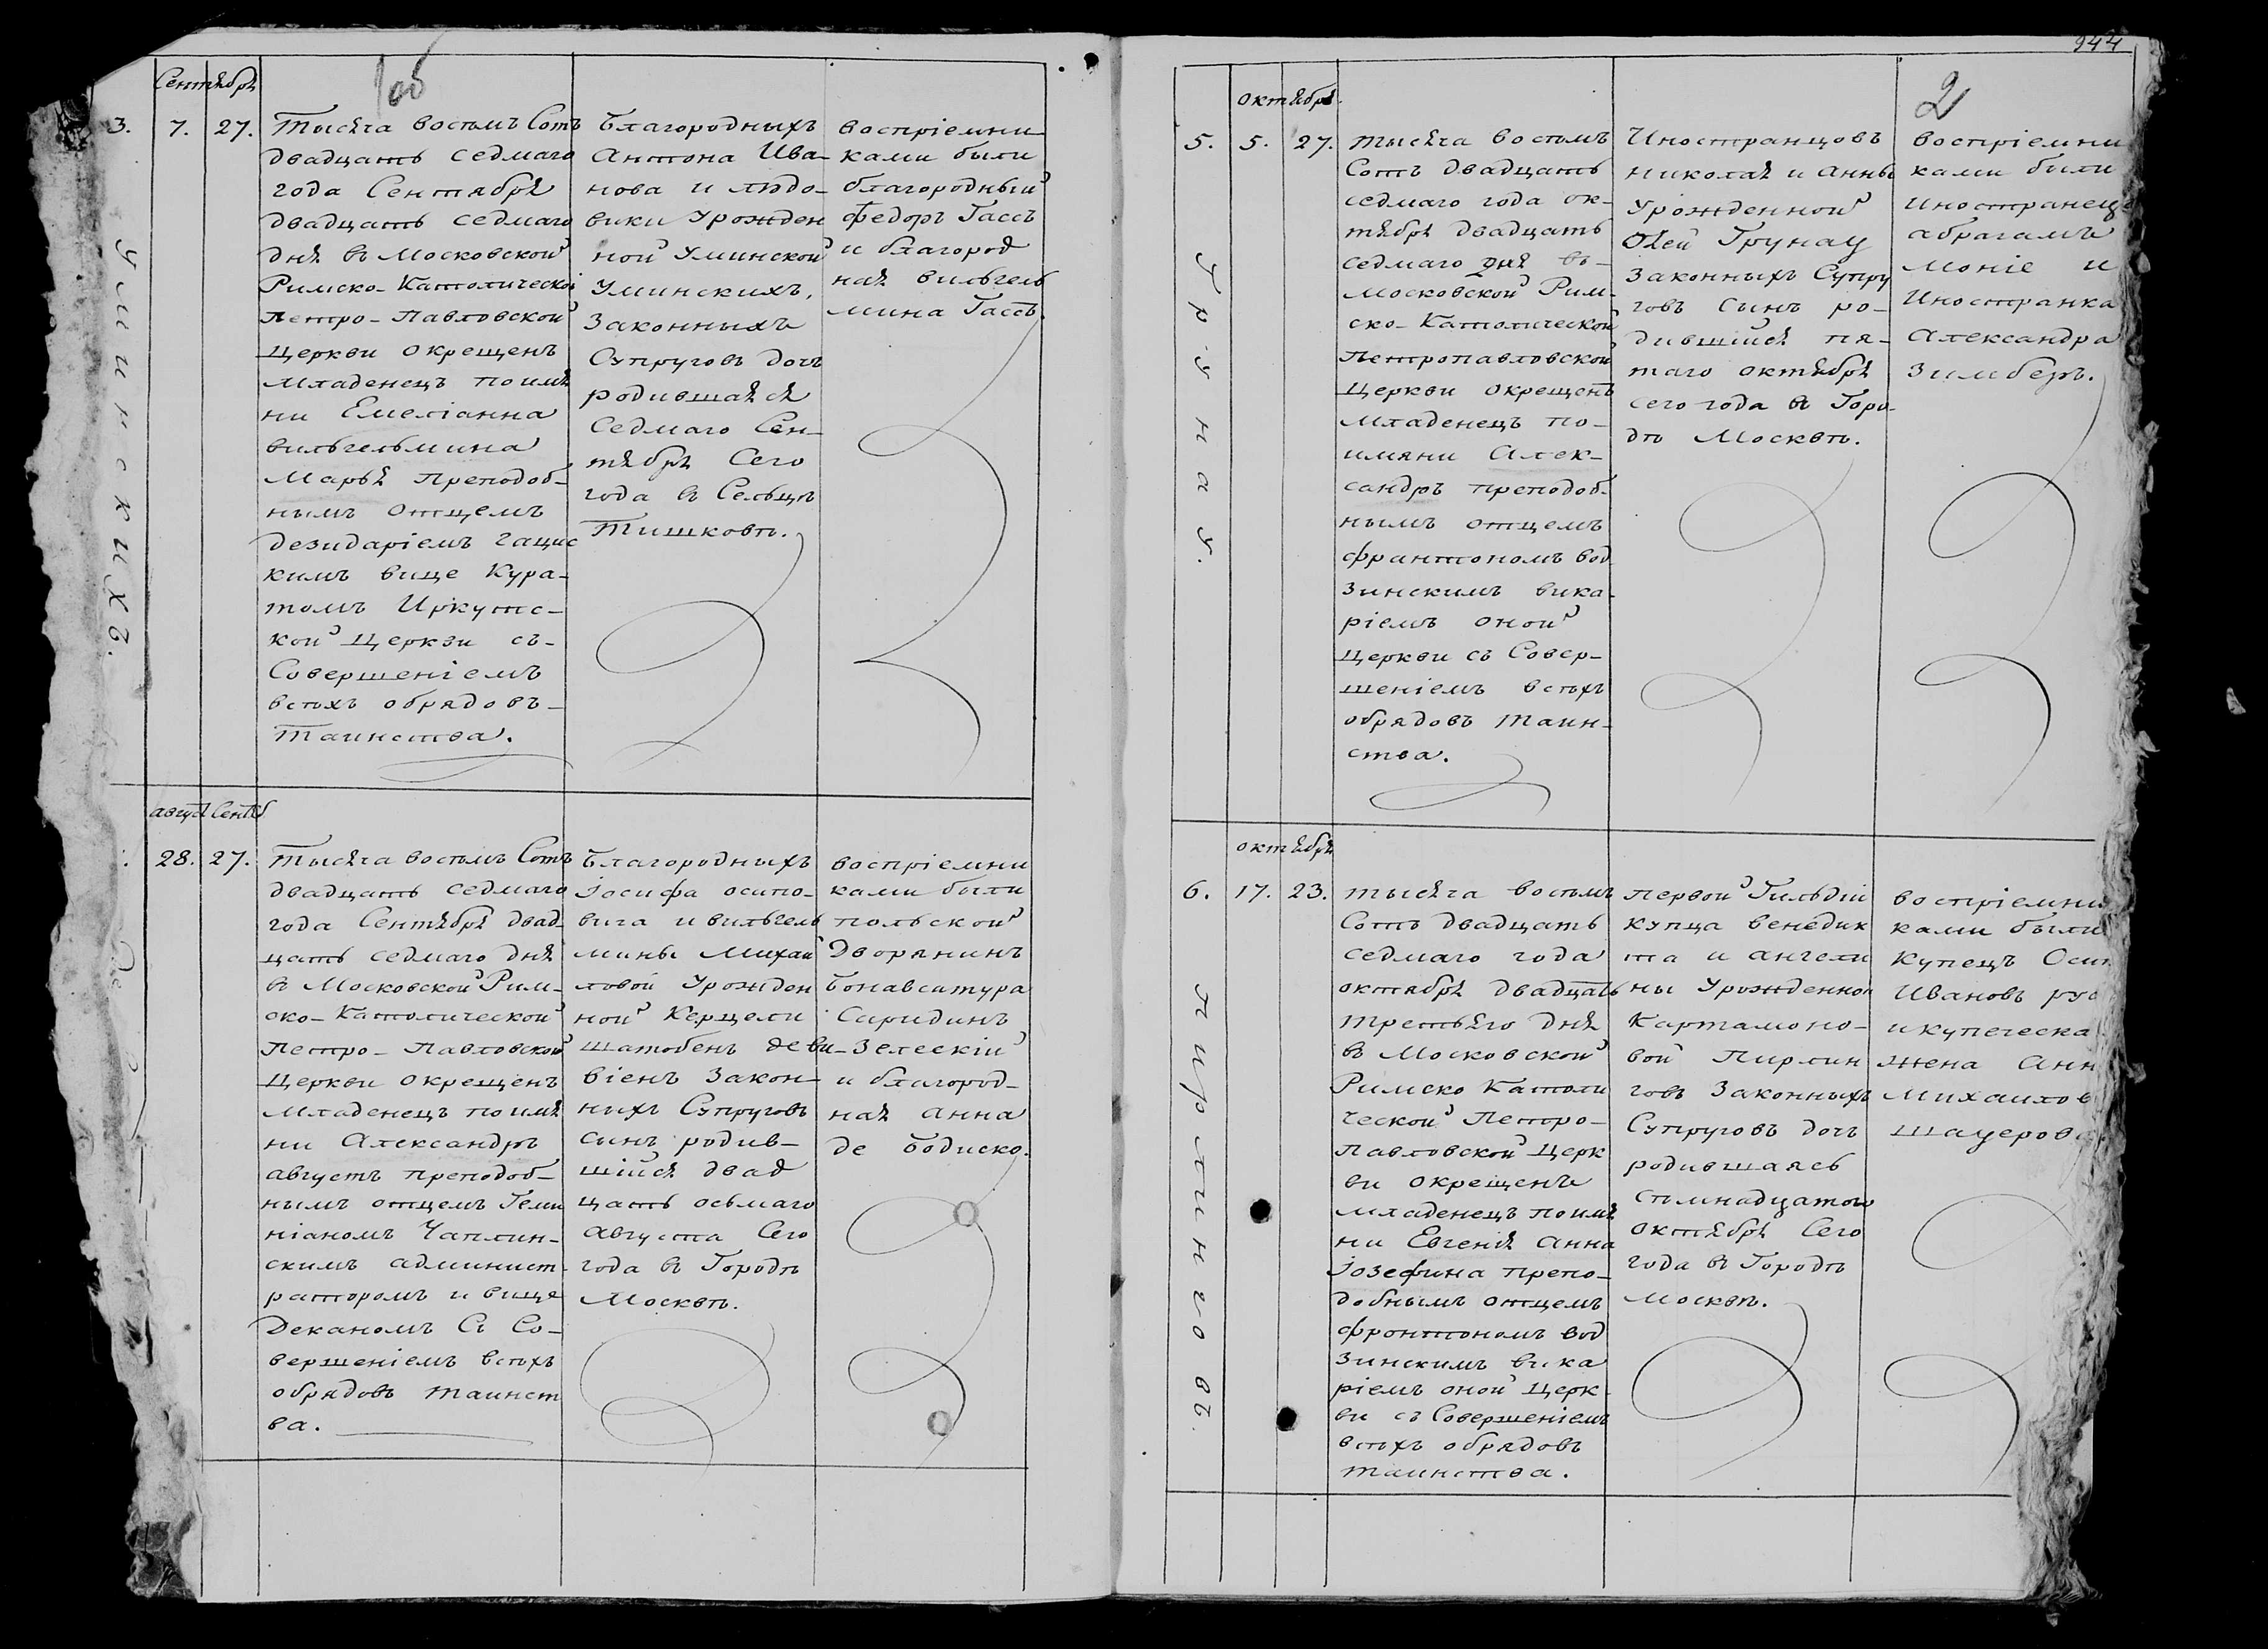 Сентября
1об
3.
7.
27.
Уминскихъ.
Тысяча восемь Сотъ
двадцать седмаго
года Сентября
двадцать седмаго
дня въ Московской
Римско-Католической
Петро-Павловской
Церкви окрещенъ
Младенецъ по имя
ни Емеліанна
вильгельмина
Марья Преподоб-
нымъ отцемъ
дезидаріемъ гацис
кимъ вице Кура-
томъ Иркутс-
кой Церкви съ-
Совершеніемъ
всѣхъ обрядовъ-
Таинства.
Благородныхъ
Антона Ива-
нова и людо-
вики Урожден
ной Уминской
Уминскихъ,
Законныхъ
Супруговъ дочь
родившаяся
Седмаго Сен-
тября Сего
года въ Сельцѣ
Тишковѣ.
воспріемни
ками были
благородный
Федоръ Гассъ
и благород
ная вильгель
мина Гассъ.
август Сентяб
28.
27.
Тысяча восемь Сотъ
двадцать седмаго
года Сентября двад-
цать седмаго дня
въ Московской Рим-
ско-Католической
Петро-Павловской
Церкви окрещенъ
Младенецъ по имя
ни Александръ
августъ преподоб-
нымъ отцемъ Геми
ніаномъ Чаплин-
скимъ админист-
раторомъ и вице
Деканомъ Съ Со-
вершеніемъ всѣхъ
обрядовъ таинст
ва.
Благородныхъ
іосифа осипо-
вича и вильгель
мины Михай
ловой Урожден
ной Керцели
шатобенъ деви-
віенъ Закон-
ныхъ Супруговъ
синъ родив-
шійся двад
цать осьмаго
августа Сего
года въ Городѣ
Москвѣ.
воспріемни
ками были
польской
Дворянинъ
Бонавентура
Саридинъ
Зелескій
и благород-
ная анна
де Бодиско.
944
2
октября
5.
5.
27.
Грунау.
тысяча восемь
Сотъ двадцать
седмаго года ок-
тября двадцать
седмаго дня въ-
Московской Рим-
ско-Католической
Петропавловской
Церкви окрещенъ
Младенецъ по-
имяни Алек-
сандръ преподоб-
нымъ отцемъ
франтономъ вод
зинскимъ вика-
ріемъ оной
Церкви съ Совер-
шеніемъ всѣхъ
обрядовъ таин-
ства.
Иностранцовъ
николая и анны
Урожденной
Грунау
Законныхъ Супру
говъ Сынъ ро-
дившійся пя-
таго октября
сего года въ Горо-
дѣ Москвѣ.
воспріемни
ками были
Иностранецъ
абрагамъ
Моніе и
Иностранка
Александра
Зимберъ.
октября
6.
17.
23.
Пирлинговъ.
тысяча восемь
Сотъ двадцать
седмаго года
октября двадцать
третьяго дня
въ Московской
Римско Католи
ческой Петро-
Павловской Церк
ви окрещенъ
младенецъ по имя
ни Евгенія анна
іозефина препо-
добнымъ отцемъ
фронтономъ вод
зинскимъ вика
ріемъ оной Церк-
ви съ Совершеніемъ
всѣхъ обрядовъ
таинства.
первой Гильдіи
купца венедик
та и ангели
ны Урожденной
Картамоно-
вой Пирлин
говъ Законныхъ
Супруговъ дочь
родившаясь
сѣмнадцатого
октября Сего
года въ Городѣ
Москвѣ.
воспріемни
ками были
Купецъ Осип
Ивановъ рус
и купеческа
жена Анн
Михаилов
шауерова